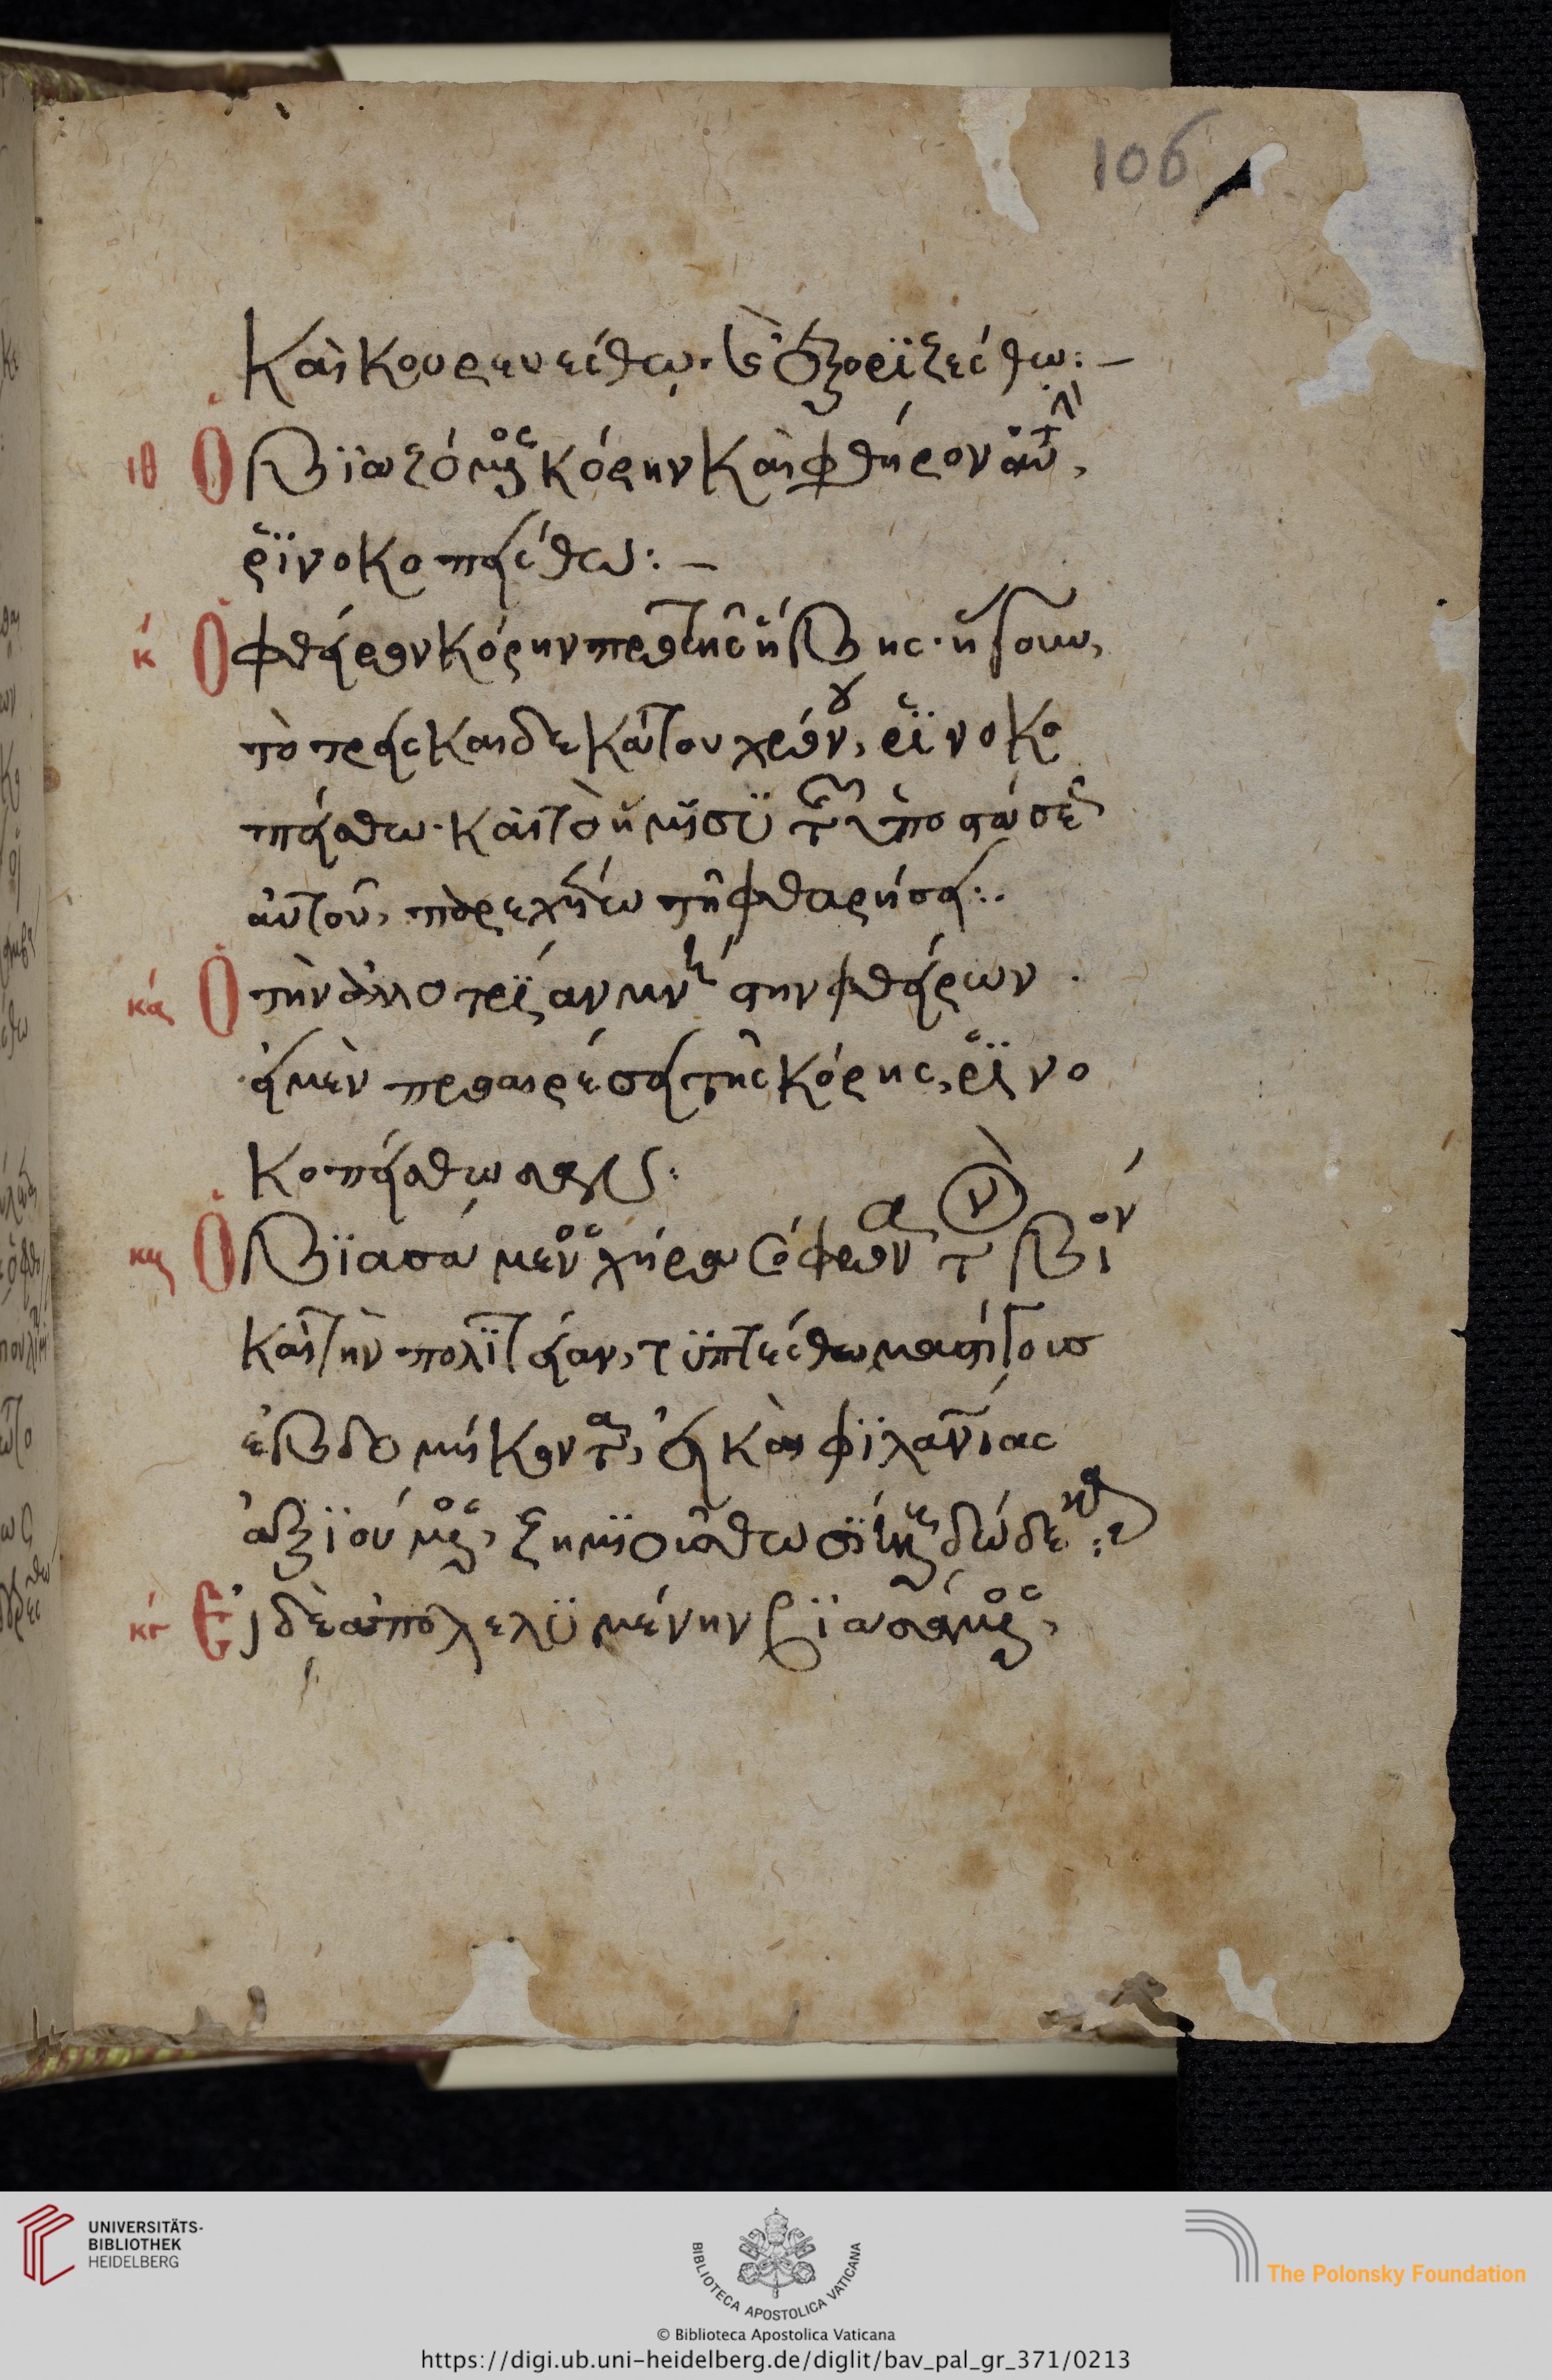 106
Καὶ κουρευέσθω. καὶ ἐξορϊζέσθω:—
ιθ Ὁ βϊαζόμενος κόρην καὶ φθήρον αὐτὴν,
ῥϊνοκοπείσθω:—
κ Ὁ φθείρων κόρην πρὸ τῆς ἥβης. ἤγουν,
τὸ τρεισκαιδεκάτου χρόνου, ῥϊνοκο
πείσθω. καὶ τὸ ἥμϊσϋ τῆς ὑποστάσεως
αὐτοῦ, παρεχέτω τῇ φθαρήσει:.
κα Ὁ τὴν ἀλλοτρϊαν μνηστὴν φθείρων.
εἰ μὲν προαιρέσει τῆς κόρης, ῥϊνο
κοπείσθω
κβ Ὁ βϊασάμενος χήρα σόφρονα τὸν βίον
καὶ τὴν πολϊτείαν, τϋπτέσθω
ἑβδομήκοντα, εἰ καὶ φϊλανίας
ἀξϊούμενος, ζημϊούσθω δώδεκα:
κγ Εἰ δὲ ἀπολελϋμένην βϊασάμενος,
UNIVERSITÄTS-
BIBLIOTHEK
HEIDELBERG
BIBLIOTECA APOSTOLICA VATICANA
The Polonsky Foundation
© Biblioteca Apostolica Vaticana
https://digi.ub.uni-heidelberg.de/diglit/bav_pal_gr_371/0213